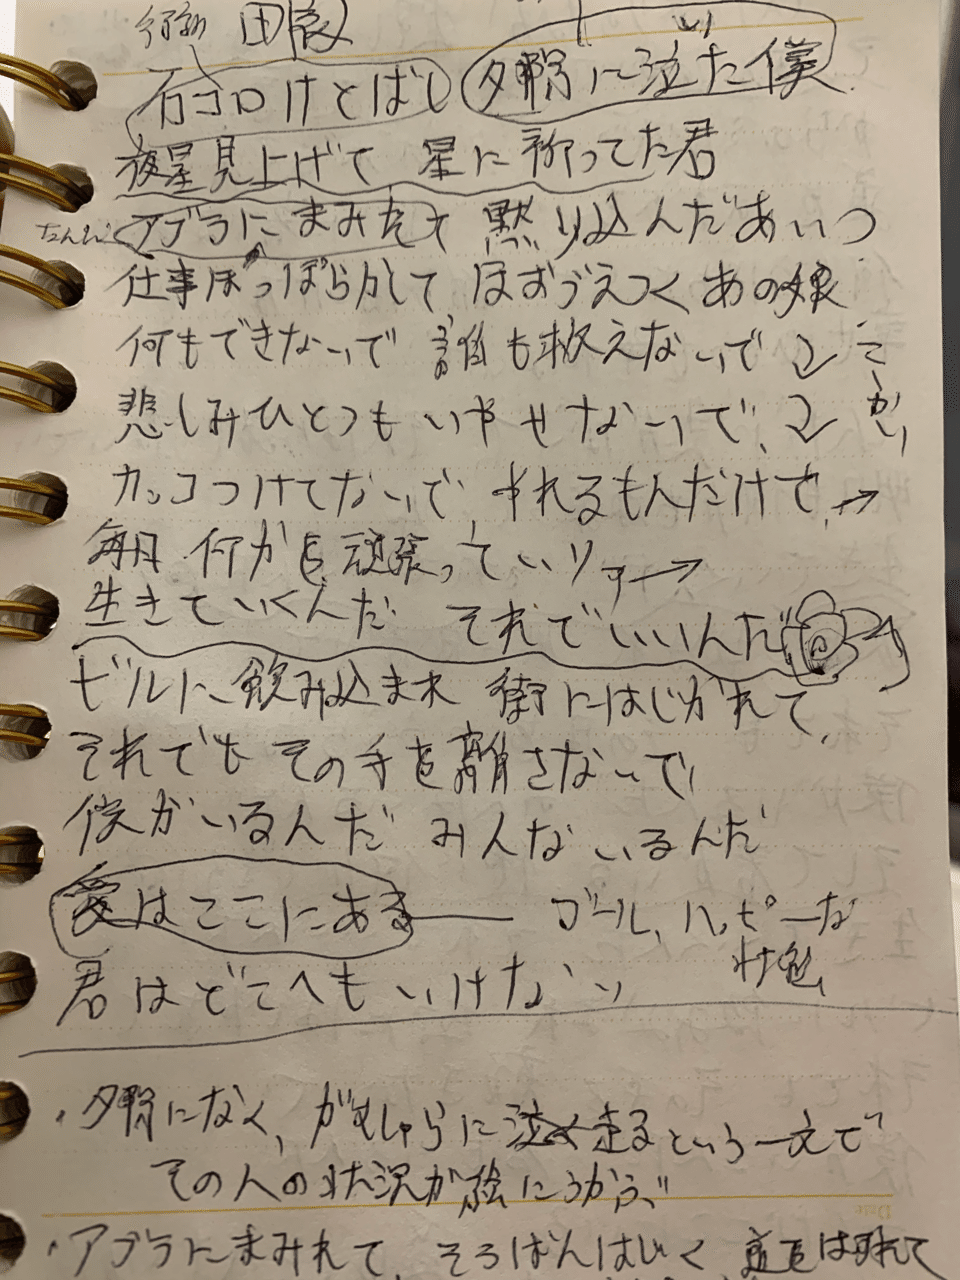 行動 田家
石コロけとばし 夕暮に泣いた僕
夜星見上げて 星に祈ってた君
アブラにまみれて 黙り込んだあいつ
仕事ほっぽらかして ほおづえつく あの娘
何もできないで 誰も救えないで
悲しみひとつも いやせないで、
カッコつけてないで、やれるもんだけで、→
毎日 何かを 頑張っていりゃ→
生きていくんだ それでいいんだ
ビルに飲み込まれ 街にはじかれて、
それでも その手を離さないで
僕がいるんだ みんないるんだ
愛はここにある ゴール、ハッピーな
状態
君はどこへもいけない
・夕暮になく、がむしゃらに走るという一文で
その人の状況が絵にうかぶ
・アブラにまみれて、そろばんはじく